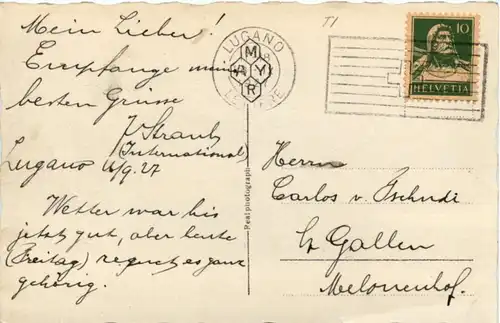 Mein Lieber!
Empfange meine
besten Grüsse
J. Straub
(International)
Lugano 4/9.27
Wetter war bis
jetzt gut, aber heute
(Freitag) regnet es ganz
gehörig.
Real photograph
T1
LUGANO
LETTERE
M
A Y
R
10
HELVETIA
Herrn
Carlos v. Tschudi
St Gallen
Melonenhof.